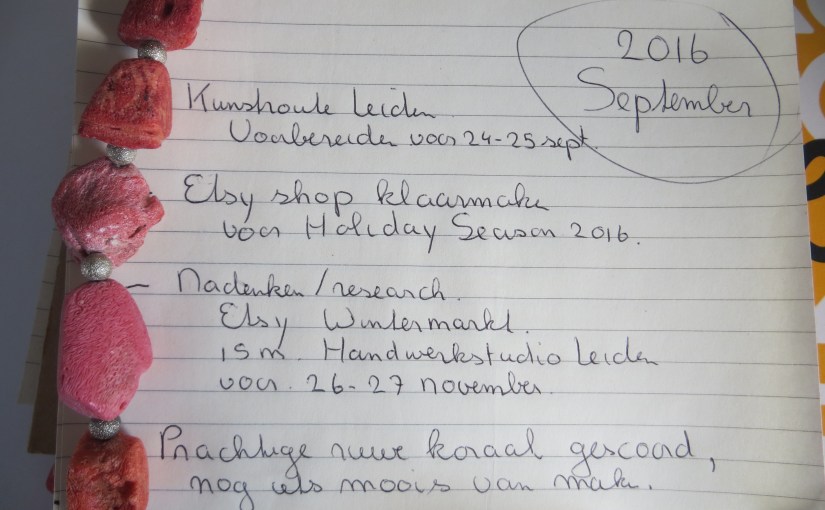 2016
September
Kunstroute Leiden
Voorbereiden voor 24-25 sept.
- Etsy shop klaarmaken
voor Holiday Season 2016.
- Nadenken/research.
Etsy Wintermarkt.
ism. Handwerkstudio Leiden
voor. 26-27 november.
Prachtige ruwe koraal gescoord,
nog iets moois van maken.